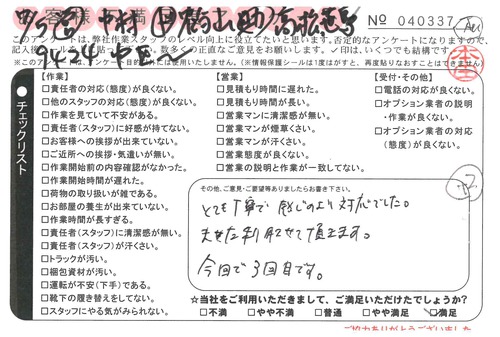 No 040337
このアンケートは、弊社作業スタッフのレベル向上に役立てたいと思います。否定的なアンケートになりますので、
記入後 数多くの正直なご意見をお願いします。✓印は、いくつでも結構です。
(※このアンケートは、アンケート目的 には使用いたしません。)(※情報保護シールは1度はがすと、再度貼りなおすことはできません。
チェックリスト
【作業】
□責任者の対応(態度)が良くない。
□他のスタッフの対応(態度)が良くない。
□作業を見ていて安心がない。
□責任者(スタッフ)に好感が持てない。
□お客様への挨拶が出来ていない。
□ご近所への挨拶・気遣いが無い。
□作業開始前の内容確認がなかった。
□作業開始時間が遅れた。
□荷物の取り扱いが雑である。
□お部屋の養生が出来ていない。
□作業時間が長すぎる。
□責任者(スタッフ)に清潔感が無い。
□責任者(スタッフ)が汗くさい。
□トラックが汚い。
□梱包資材が汚い。
□運転が不安(下手)である。
□靴下の履き替えをしてない。
□スタッフにやる気がみられない。
【営業】
□見積もり時間に遅れた。
□見積もり時間が長い。
□営業マンに清潔感が無い。
□営業マンが煙草くさい。
□営業マンが汗くさい。
□営業態度が良くない。
□営業の説明と作業が一致してない。
【受付・その他】
□電話の対応が良くない。
□オプション業者の説明
・作業が良くない。
□オプション業者の対応
(態度)が良くない。
その他、ご意見・ご要望等ありましたらお書き下さい。
とても丁寧で感じのよい対応でした。
また利用させて頂きます。
今回で3回目です。
☆当社をご利用いただきまして、ご満足いただけたでしょうか?
□不満 □やや不満 □普通 □やや満足 ☑満足
ご協力ありがとうございました